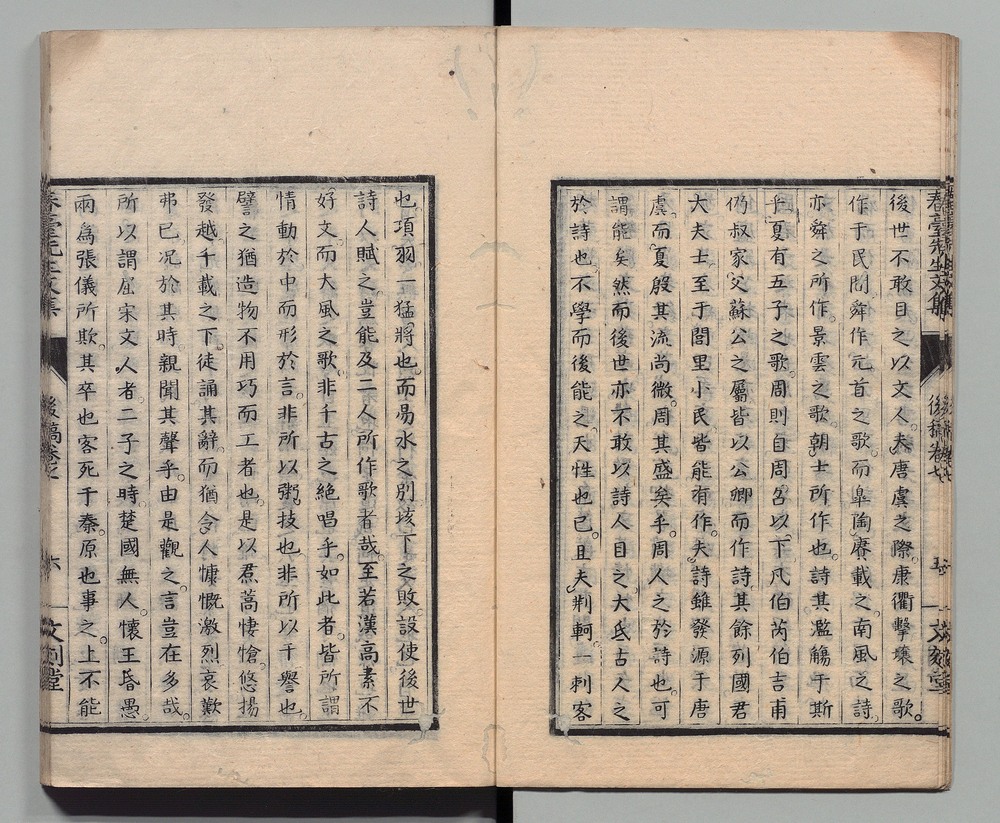 後世不敢目之以文人。夫唐虞之際。康衢擊壤之歌。
作于民間。舜作元首之歌。而皐陶賡載之。南風之詩
亦舜之所作。景雲之歌。朝士所作也。詩其濫觴于斯
乎。夏有五子之歌。周則自周召以下。凡伯芮伯吉甫
仍叔家父蘇公之屬。皆以公卿而作詩。其餘列國君
大夫士。至于閭里小民。皆能有作。夫詩雖發源于唐
虞。而夏殷其流尚微。周其盛矣乎。周人之於詩也。可
謂能矣。然而後世亦不敢以詩人目之。大氐古人之
於詩也。不學而後能之。天性也已。且夫荆軻。一刺客
春臺先生文集
後稿卷之七
五
文刻堂
也。項羽。一猛將也。而易水之別。垓下之敗。設使後世
詩人賦之。豈能及二人所作歌者哉。至若漢高素不
好文。而大風之歌。非千古之絶唱乎。如此者。皆所謂
情動於中而形於言。非所以粥技也。非所以干譽也。
譬之猶造物不用巧而工者也。是以焄蒿悽愴。悠揚
發越。千載之下。徒誦其辭。而猶令人慷慨激烈哀歎
弗已。况於其時親聞其聲乎。由是觀之。言豈在多哉。
所以謂屈宋文人者。二子之時。楚國無人。懷王昏愚。
兩爲張儀所欺。其卒也客死于秦。原也事之。上不能
春臺先生文集
後稿卷之七
六
文刻堂